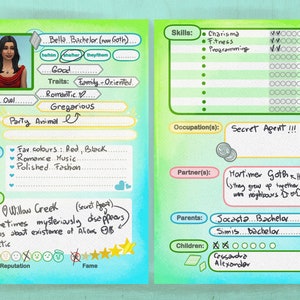 Bella Bachelor (now Goth)
Good
Traits: Family-Oriented
Romantic
Owl
Gregarious
Party Animal
Fav colours: Red, Black
Romance Music
Polished Fashion
Willow Creek
(secret Agent)
mysteriously disappears
about existence of Aliens
Reputation
Fame
Skills:
Charisma
Fitness
Programming
Occupation(s):
Secret Agent!!!
Partner(s):
Mortimer Goth
they grew up together
was neighbours
Parents:
Jocasta Bachelor
Simis Bachelor
Children:
Cassandra
Alexander